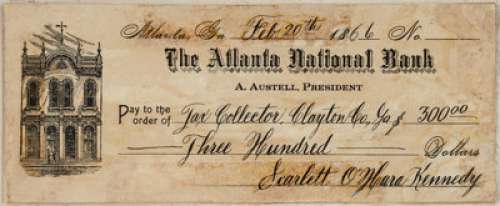 Atlanta, Ga Feb. 20th 1866 No.
The Atlanta National Bank
A. AUSTELL, PRESIDENT
Pay to the order of Tax Collector, Clayton Co, Ga $ 300.00
Three Hundred Dollars
Scarlett O'Hara Kennedy